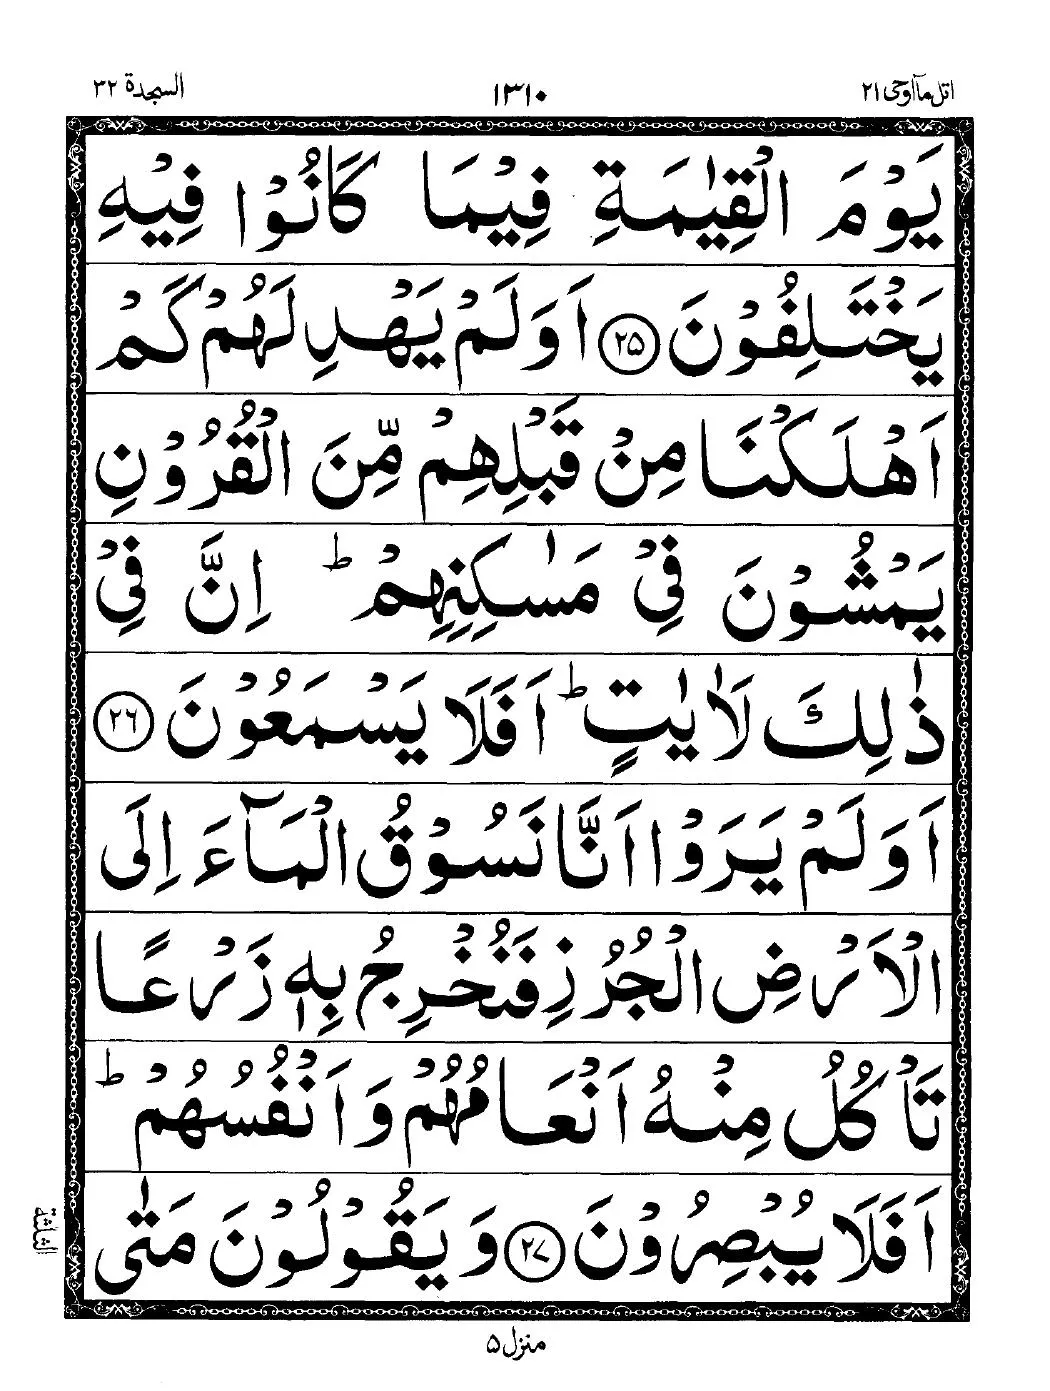 اتل مآاوحی ۲۱
۱۳۱۰
السجدة ۳۲
يَوْمَ الْقِيٰمَةِ فِيْمَا كَانُوْا فِيْهِ
يَخْتَلِفُوْنَ ۲۵ اَوَلَمْ يَهْدِ لَهُمْ كَمْ
اَهْلَكْنَا مِنْ قَبْلِهِمْ مِّنَ الْقُرُوْنِ
يَمْشُوْنَ فِيْ مَسٰكِنِهِمْ ؕ اِنَّ فِيْ
ذٰلِكَ لَاٰيٰتٍ ؕ اَفَلَا يَسْمَعُوْنَ ۲۶
اَوَلَمْ يَرَوْا اَنَّا نَسُوْقُ الْمَآءَ اِلَى
الْاَرْضِ الْجُرُزِ فَنُخْرِجُ بِهٖ زَرْعًا
تَاْكُلُ مِنْهُ اَنْعَامُهُمْ وَاَنْفُسُهُمْ ؕ
اَفَلَا يُبْصِرُوْنَ ۲۷ وَيَقُوْلُوْنَ مَتٰى
الثلثة
منزل ۵